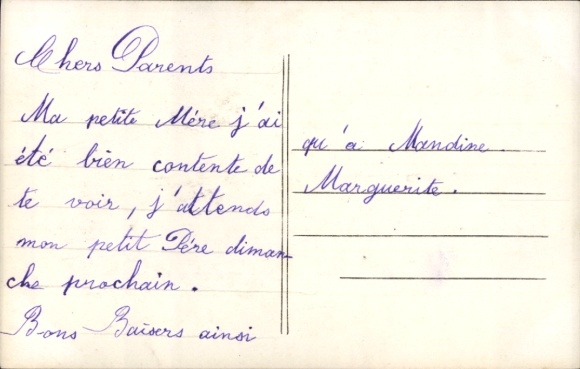 Chers Parents
Ma petite Mére j'ai
été bien contente de
te voir, j'attends
mon petit Pére diman-
che prochain.
Bons Baisers ainsi
qu'a Mandine.
Marguerite.